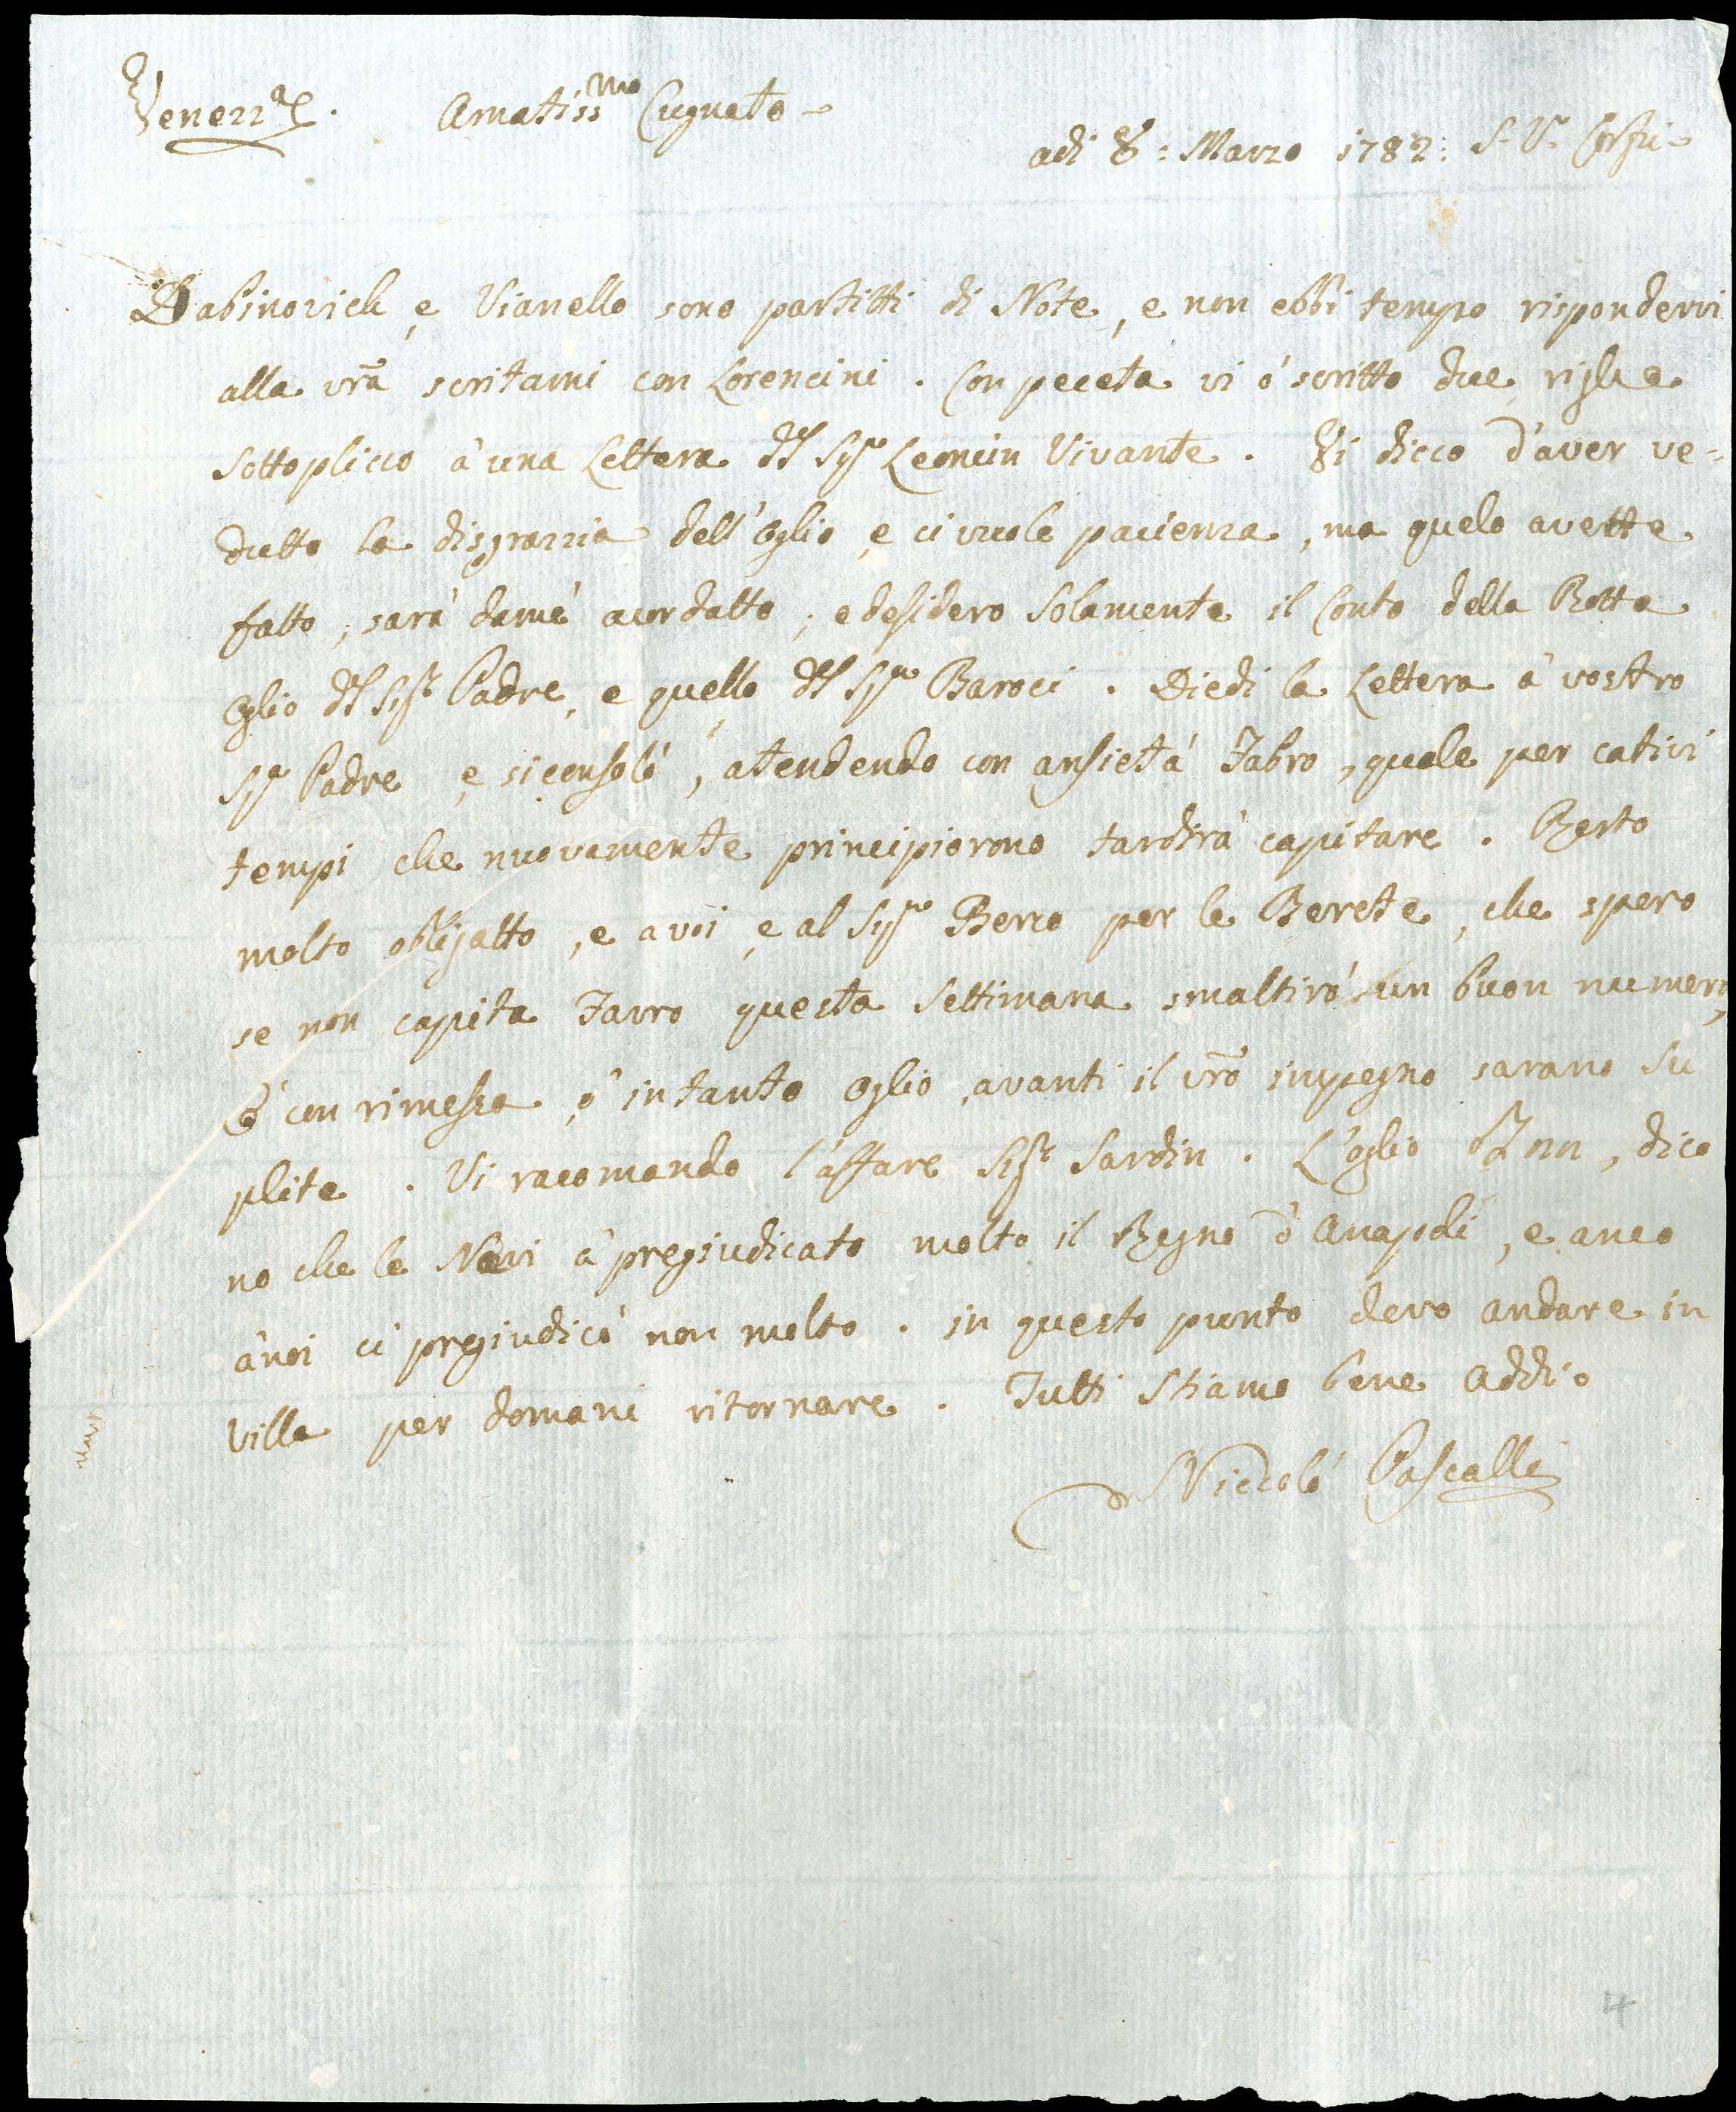 Venezza. Amatissmo Cugnato
adi 8: Marzo 1782: S. V. Corfù
Dabinovich e Vianello sono partitti di Note, e non ebbi tempo rispondervi
alla vra scritami con Lorencini. Con peceta vi ó scritto due righe
sottoplicco à una Lettera del Sigr Leoncin Vivante. Vi dicco d'aver ve=
dutto la disgrazzia dell'oglio e ci vuole pacienza, ma quelo avette
fatto, sarà damé acordatto; e desidero solamente il Conto della Botta
oglio del Sigr Padre, e quello del Sigr Baroci. Diedi la Lettera à vostro
Sigr Padre e si consolò, atendendo con ansietá Fabro, quale per cativi
tempi che nuovamente principiorono tardirà capitare. Resto
molto obligatto, e a voi e al Sigr Berzo per le Berete, che spero
se non capita Favro questa settimana smaltiró un buon numero,
ó con rimessa ó in tanto oglio, avanti il vro impegno sarano su
plite. Vi racomando l'affare Sigr Sardin. L'oglio, dico
no che le Nevi à pregiudicato molto il Regno d'Anapoli, e anco
ànoi ci pregiudicò non molto. in questo punto devo andare in
villa per domani ritornare. Tutti stiamo bene addio
Niccoló Pascalli
4